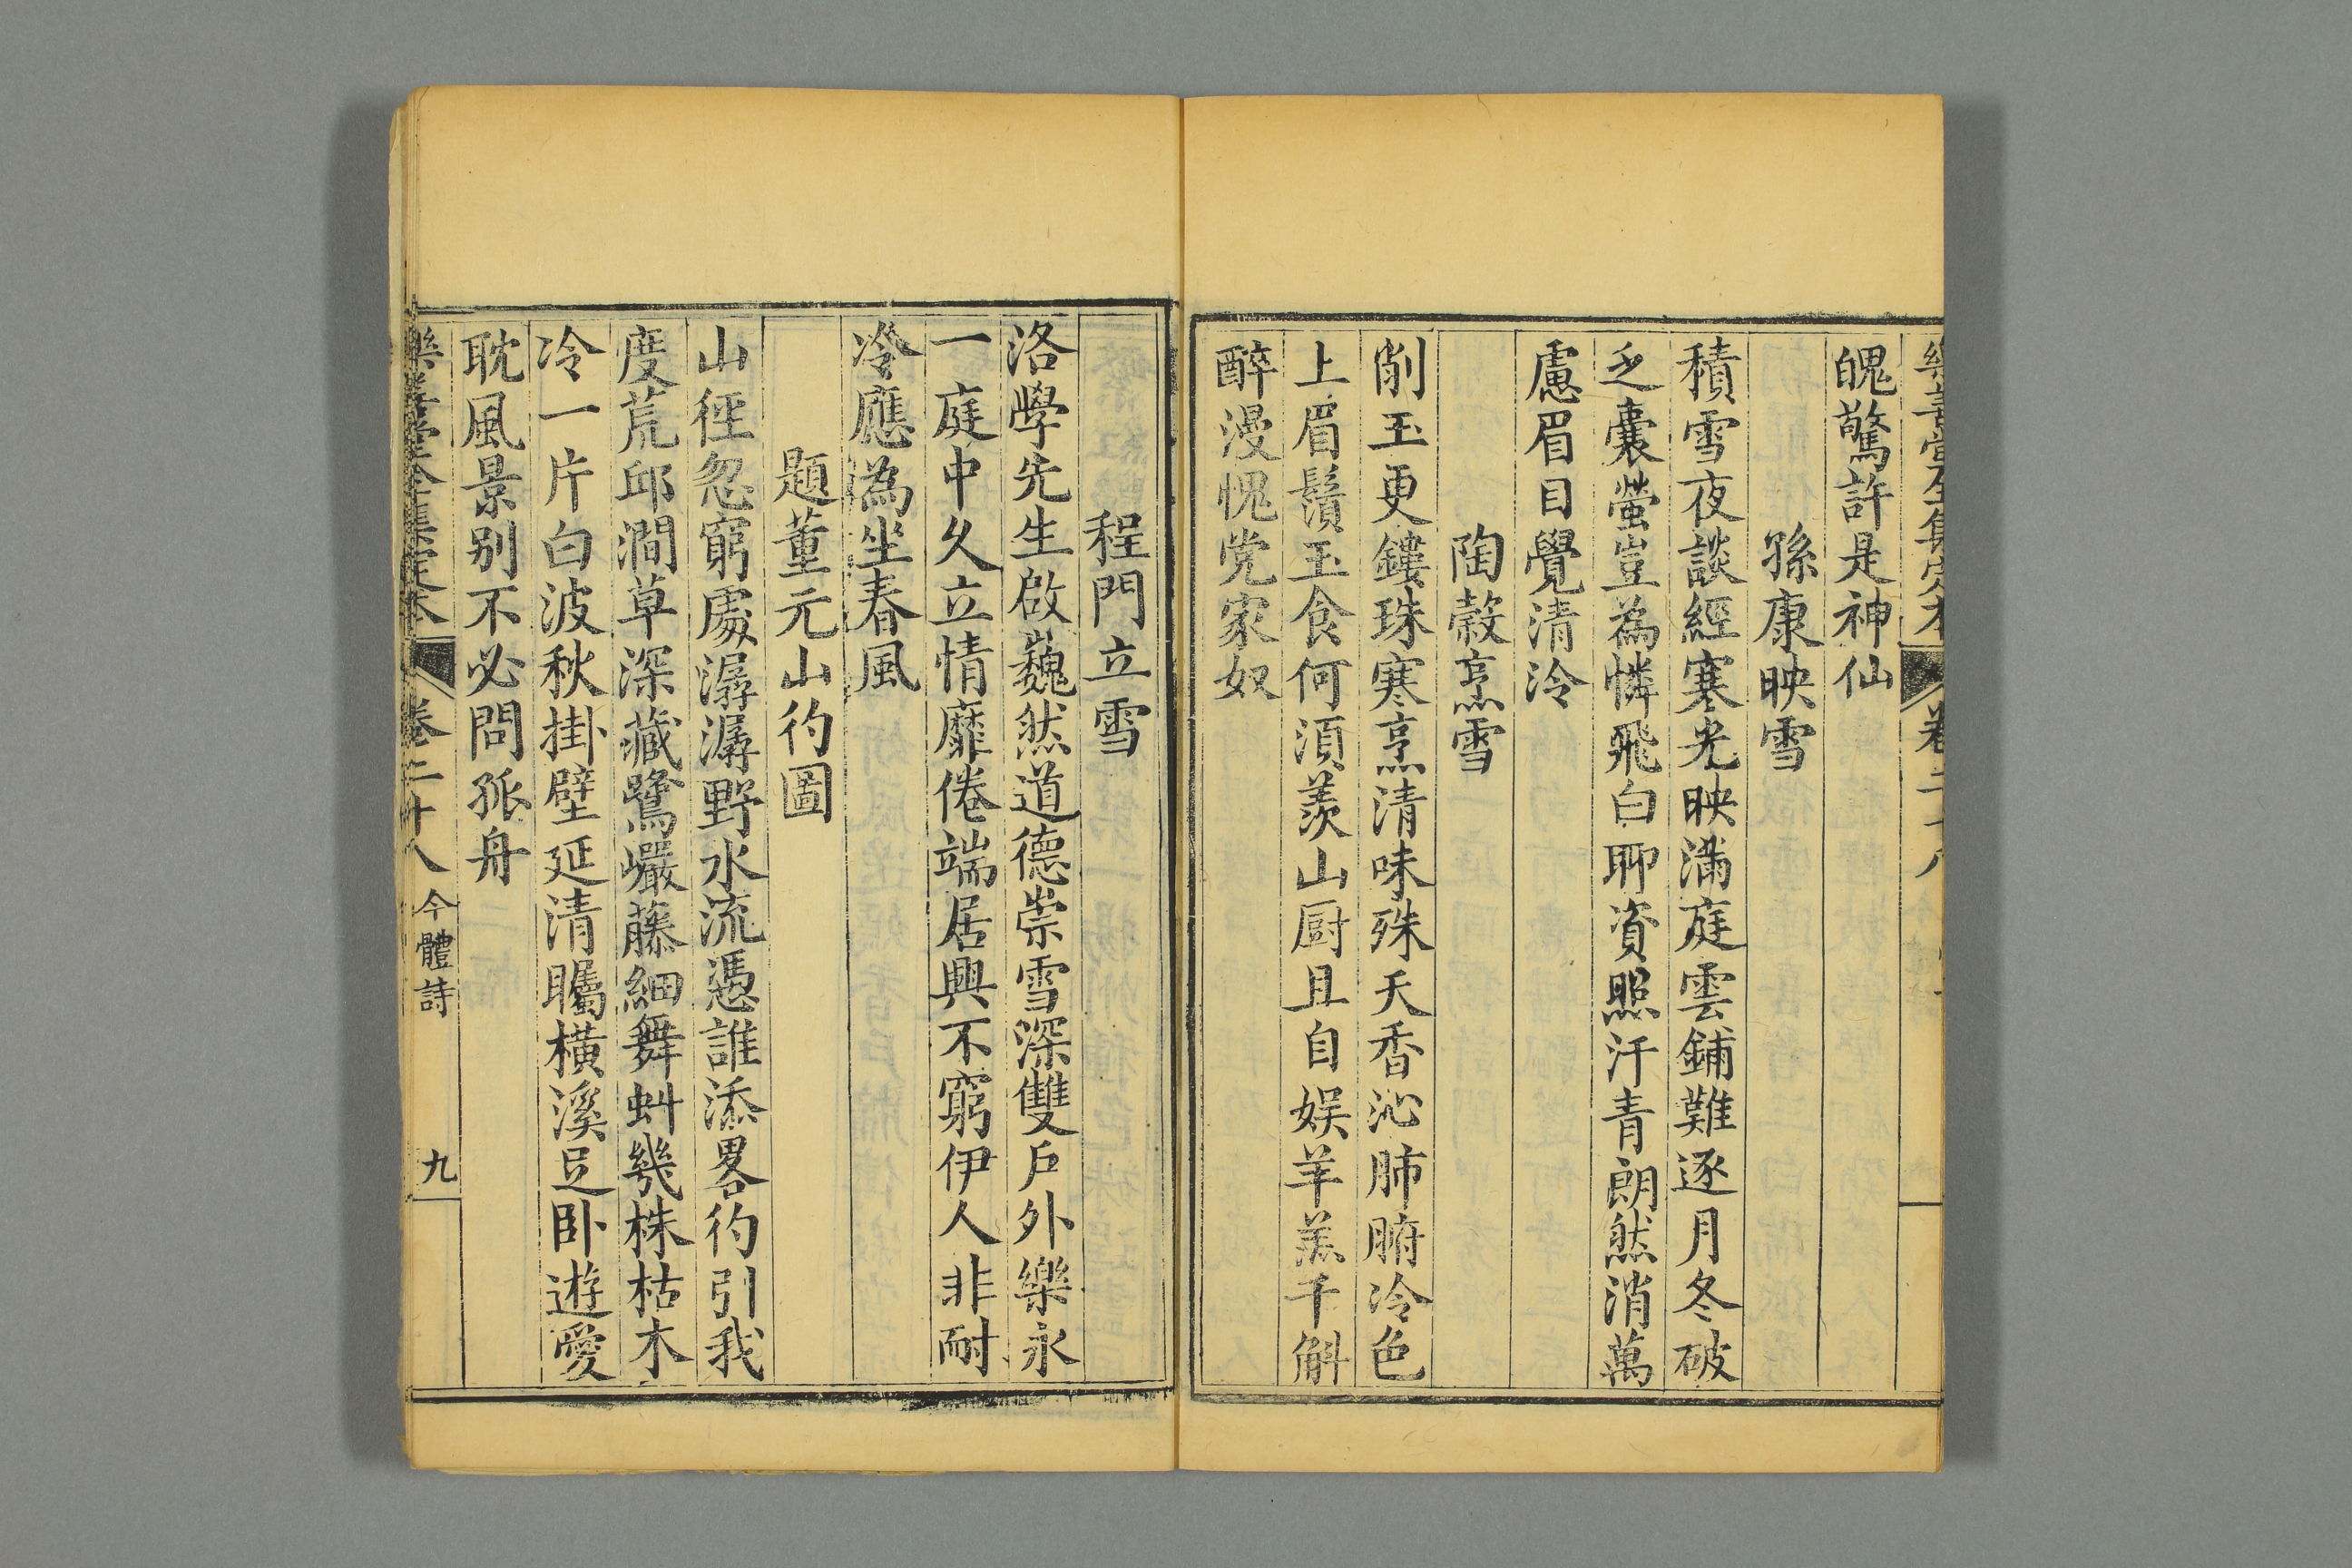 樂善堂全集定本 卷二十八
皚驚許是神仙
孫康映雪
積雪夜談經寒光映滿庭雲鋪難逐月冬破
乏囊螢豈為憐飛白聊資照汗青朗然消萬
慮眉目覺清泠
陶穀烹雪
削玉更鏤珠寒烹清味殊天香沁肺腑冷色
上眉鬚玉食何須羨山厨且自娱羊羔千斛
醉漫愧党家奴
程門立雪
洛學先生啟巍然道德崇雪深雙戶外樂永
一庭中久立情靡倦端居興不窮伊人非耐
冷應為坐春風
題董元山彴圖
山徑忽窮處潺潺野水流憑誰添畧彴引我
度荒邱澗草深藏鷺巖藤細舞虯幾株枯木
冷一片白波秋掛壁延清矚橫溪足卧遊愛
耽風景别不必問孤舟
樂善堂全集定本 卷二十八 今體詩 九